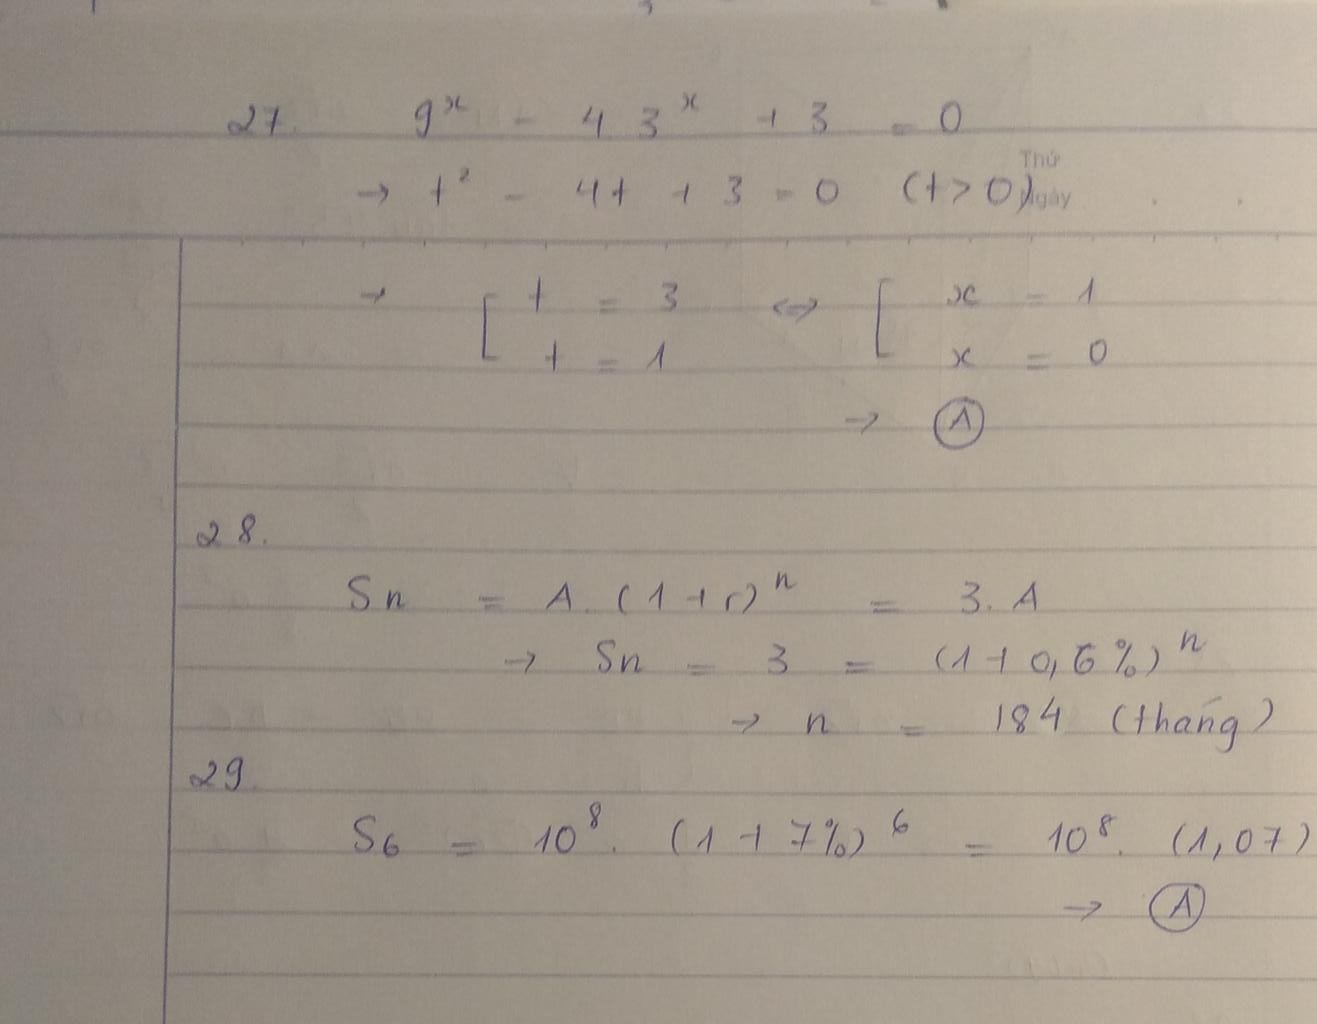 27. 9^x - 4 3^x + 3 = 0
Thứ
→ t² - 4t + 3 = 0 (t > 0)
Ngày
→ [ t = 3 ⇔ [ x = 1
t = 1 x = 0
→ Ⓐ
28.
Sn = A. (1 + r)^n = 3. A
→ Sn = 3 = (1 + 0,6%)^n
→ n = 184 (tháng)
29.
S6 = 10^8. (1 + 7%)^6 = 10^8. (1,07)
→ Ⓐ